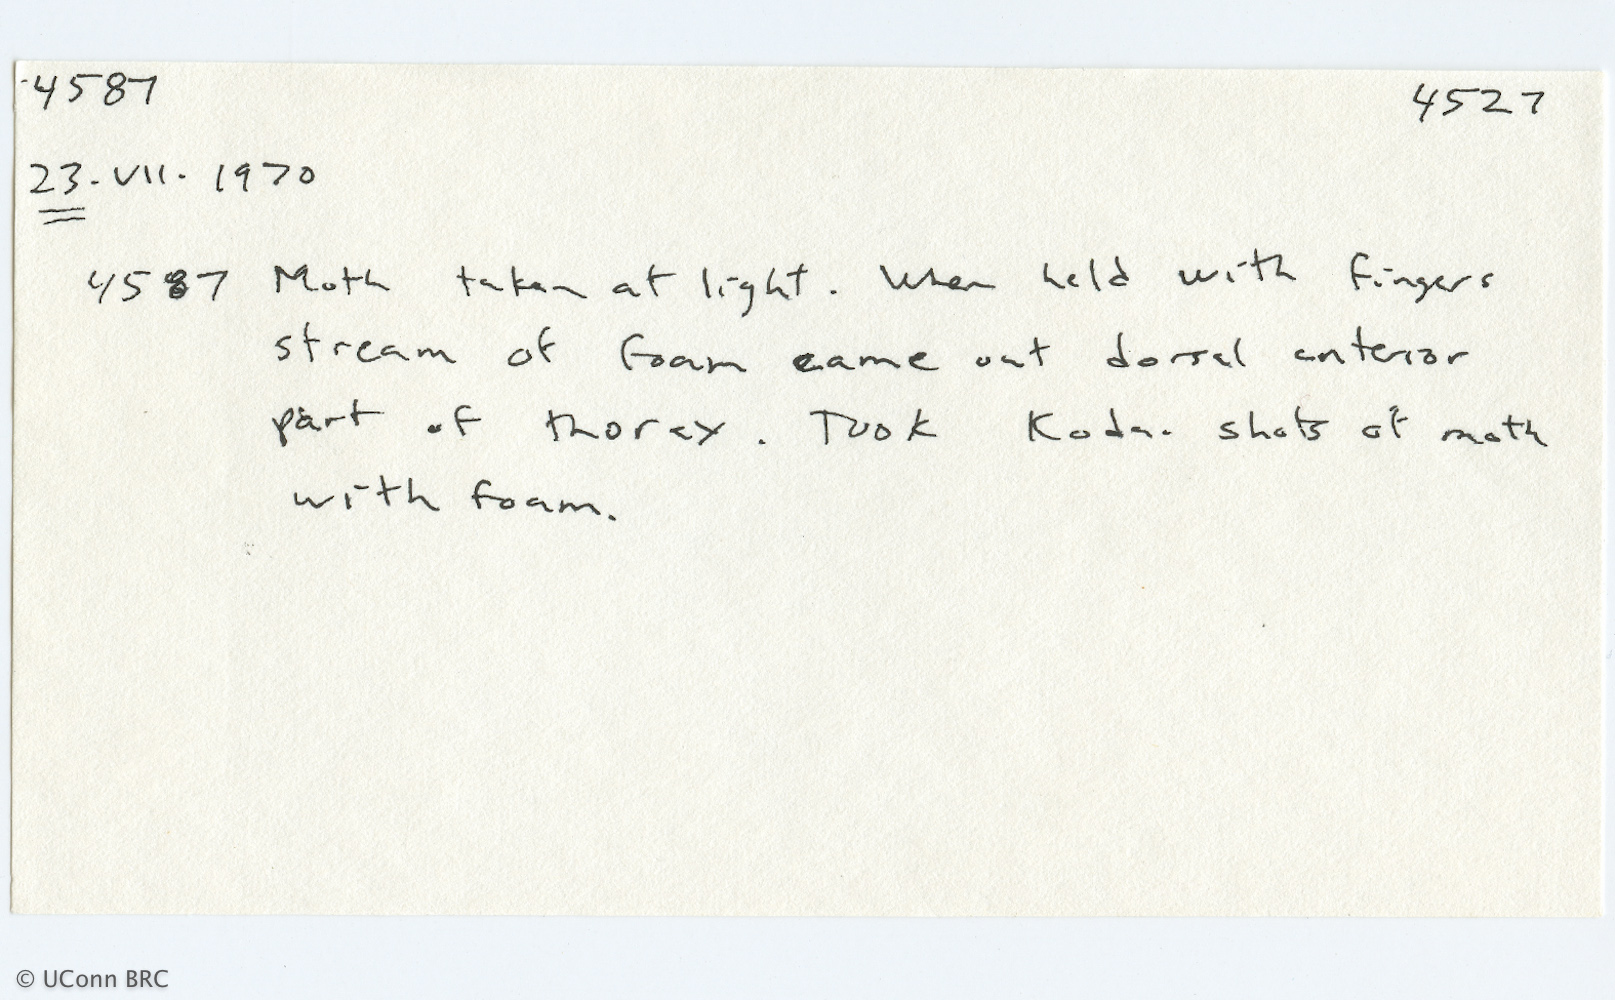 4587 4527
23. VII. 1970
4587 Moth taken at light. When held with fingers
stream of foam came out dorsal anterior
part of thorax. Took Koda. shots of moth
with foam.
© UConn BRC